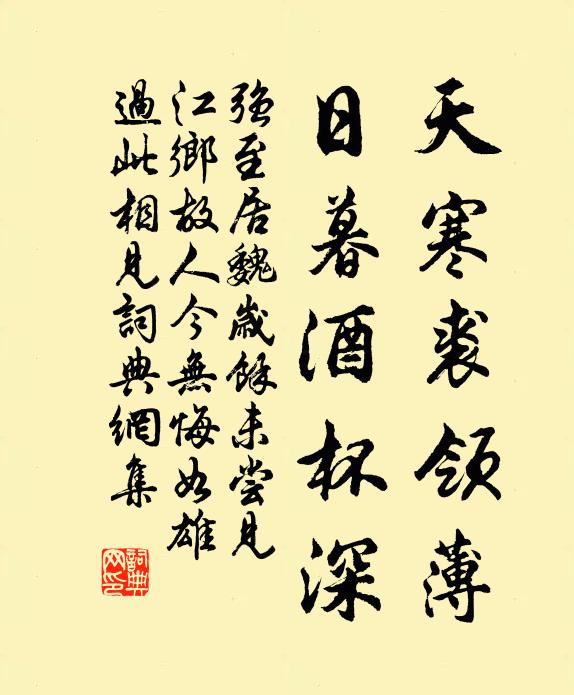 天寒裘领薄
日暮酒杯深
强至居魏岁余未尝见
江乡故人今无悔如雄
过此相见词典网集
词典网印